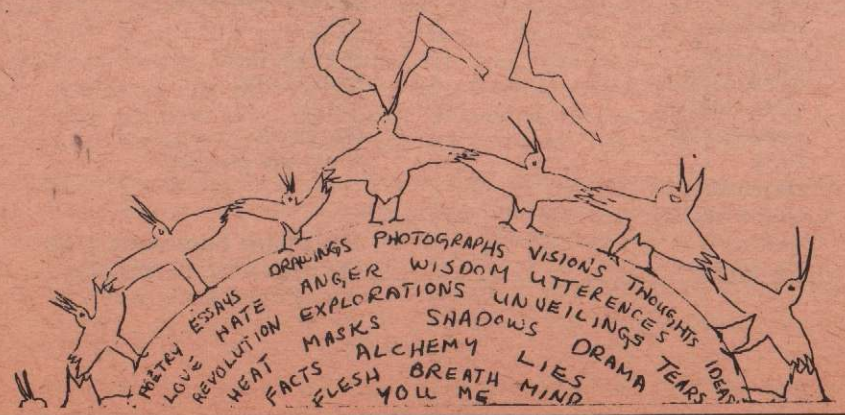 POETRY ESSAYS DRAWINGS PHOTOGRAPHS VISIONS THOUGHTS IDEAS
LOVE HATE ANGER WISDOM UTTERENCES TEARS
REVOLUTION EXPLORATIONS UNVEILINGS
HEAT MASKS SHADOWS DRAMA
FACTS ALCHEMY LIES
FLESH BREATH MIND
YOU ME